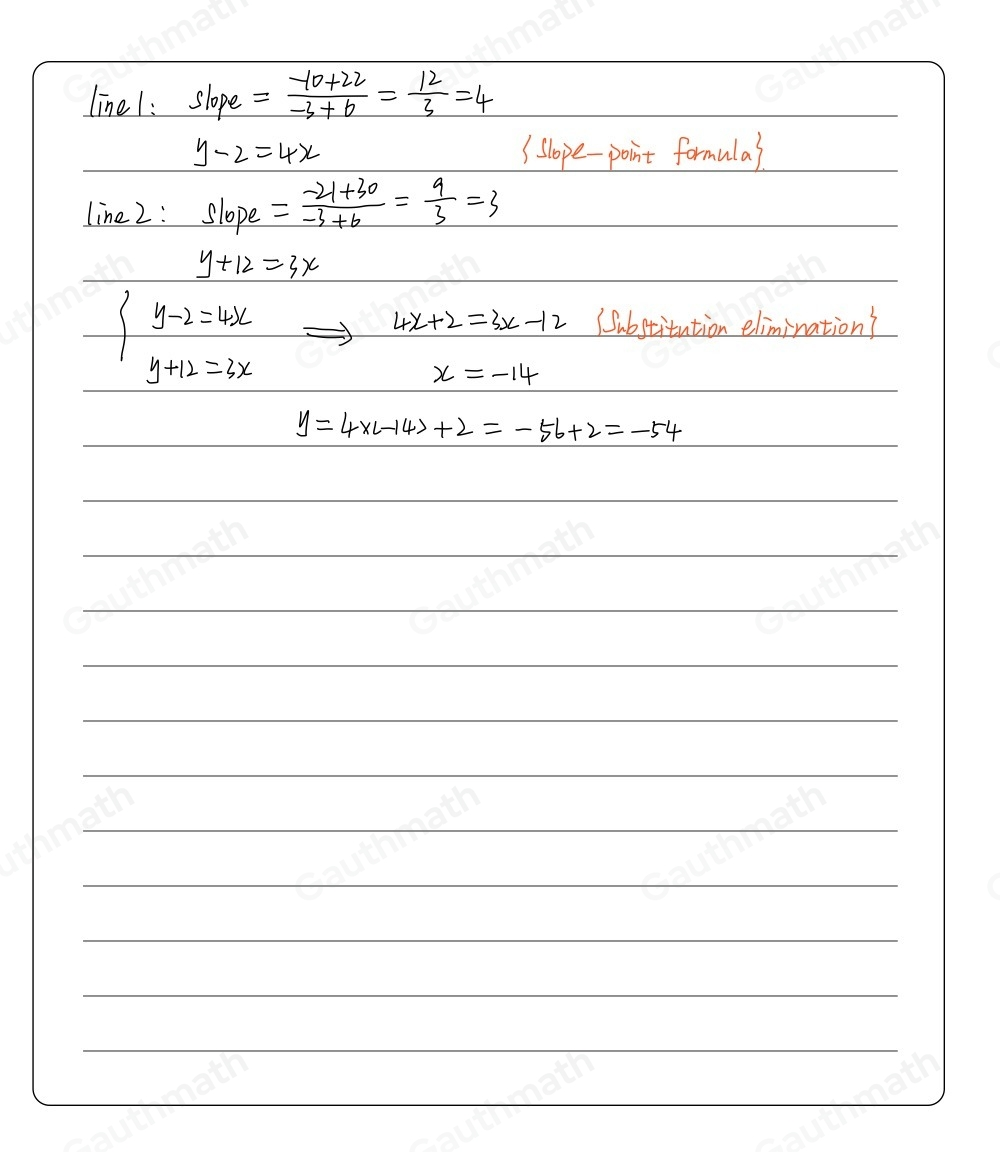 line 1: slope = \frac{-10+22}{-3+6} = \frac{12}{3} = 4
y-2=4x {Slope-point formula}.
line 2: slope = \frac{-21+30}{-3+6} = \frac{9}{3} = 3
y+12=3x
{ y-2=4x ⟹ 4x+2=3x-12 {Substitution elimination}
y+12=3x x=-14
y=4×(-14)+2=-56+2=-54
Gauthmath